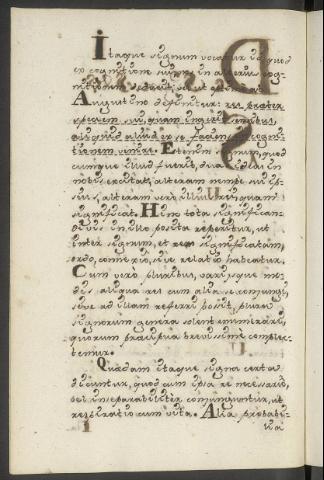 Itaque signum vocatur id, quod
ex cognitione sui in alterius cog-
nitionem
Augustino definitur: res præter
speciem sui, quam ingerit sensibus,
aliquid aliud ex se faciens in cogni-
tionem venire. Etenim signum, quod
cumque illud fuerit, duas ideas in
nobis excitat, alteram nempe sui ip-
sius, alteram vero illius rei, quam
significat. Hinc tota significan-
di vis in illo posita reperitur, ut
inter signum, et rem significatam,
ordo, connexio, sive relatio habeatur.
Cum vero pluribus, variisque mo-
dis aliqua res cum alia conjungi,
seve ad illam referri possit, plura
signorum genera solent enumerari,
quorum præcipua brevissime complec-
temur.
Quædam itaque signa certa
dicuntur, quod cum ipsa re necessario,
vel inseparabiliter conjunguntur, ut
respiratio cum vita. Alia probabi-
lia